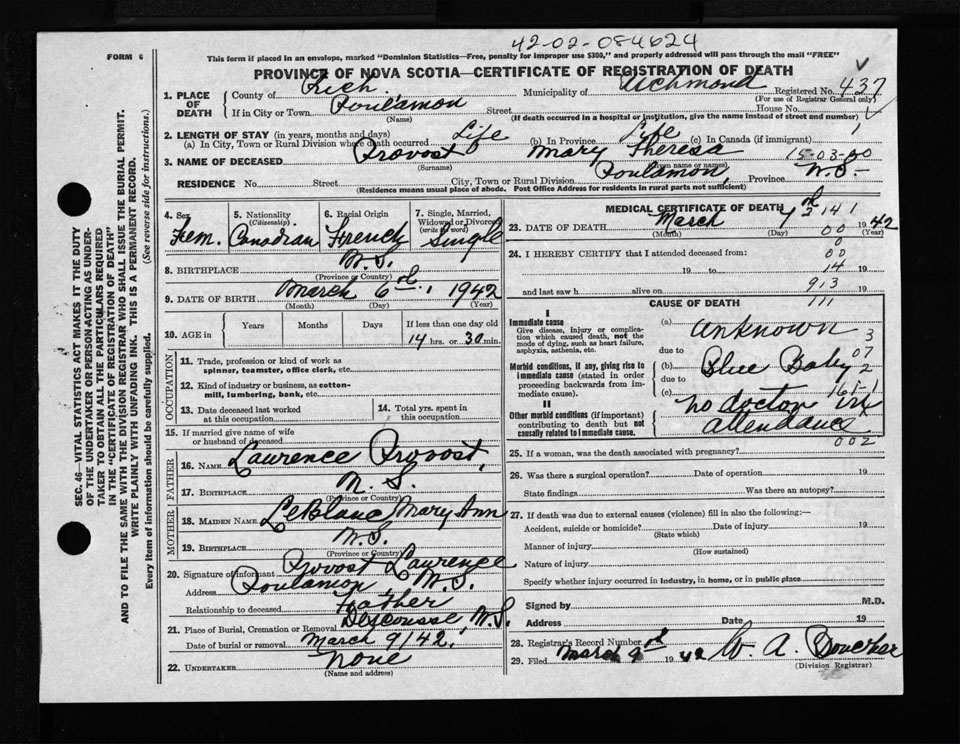 42-02-084624
FORM 6
This form if placed in an envelope, marked "Dominion Statistics—Free, penalty for improper use $300," and properly addressed will pass through the mail "FREE"
PROVINCE OF NOVA SCOTIA—CERTIFICATE OF REGISTRATION OF DEATH
1. PLACE OF DEATH County of Rich. Municipality of Richmond Registered No. 437
(For use of Registrar General only)
If in City or Town Poulamon Street House No.
(Name) (If death occurred in a hospital or institution, give the name instead of street and number)
2. LENGTH OF STAY (in years, months and days)
(a) In City, Town or Rural Division where death occurred Life (b) In Province Life (c) In Canada (if immigrant)
3. NAME OF DECEASED Provost Mary Theresa 15-03-00
(Surname) (Given name or names)
RESIDENCE No. Street City, Town or Rural Division Poulamon, Province N.S.
(Residence means usual place of abode. Post Office Address for residents in rural parts not sufficient)
4. Sex Fem. 5. Nationality (Citizenship) Canadian 6. Racial Origin French 7. Single, Married, Widowed or Divorced (write the word) Single
8. BIRTHPLACE N.S.
(Province or Country)
9. DATE OF BIRTH March 6th, 1942
(Month) (Day) (Year)
10. AGE in Years Months Days If less than one day old
14 hrs. or 30 min.
OCCUPATION
11. Trade, profession or kind of work as spinner, teamster, office clerk, etc.
12. Kind of industry or business, as cotton-mill, lumbering, bank, etc.
13. Date deceased last worked at this occupation
14. Total yrs. spent in this occupation
15. If married give name of wife or husband of deceased
FATHER
16. NAME Lawrence Provost,
17. BIRTHPLACE N.S.
(Province or Country)
MOTHER
18. MAIDEN NAME LeBlanc Mary Ann
19. BIRTHPLACE N.S.
(Province or Country)
20. Signature of informant Provost Lawrence
Address Poulamon N.S.
Relationship to deceased Father
21. Place of Burial, Cremation or Removal Descousse, N.S.
Date of burial or removal March 9/42
22. UNDERTAKER None
(Name and address)
MEDICAL CERTIFICATE OF DEATH
23. DATE OF DEATH March 7 1942
(Month) (Day) (Year)
24. I HEREBY CERTIFY that I attended deceased from:
19 to 19
and last saw h alive on 19
CAUSE OF DEATH
I
Immediate cause
Give disease, injury or complication which caused death, not the mode of dying, such as heart failure, asphyxia, asthenia, etc.
(a) Unknown
due to
Morbid conditions, if any, giving rise to immediate cause (stated in order proceeding backwards from immediate cause).
(b) Blue Baby
due to
(c) no doctor in
II
Other morbid conditions (if important) contributing to death but not causally related to immediate cause.
attendance
002
25. If a woman, was the death associated with pregnancy?
26. Was there a surgical operation? Date of operation 19
State findings Was there an autopsy?
27. If death was due to external causes (violence) fill in also the following:—
Accident, suicide or homicide? Date of injury 19
(State which)
Manner of injury
(How sustained)
Nature of injury
Specify whether injury occurred in industry, in home, or in public place
Signed by M.D.
Address Date 19
28. Registrar's Record Number
29. Filed March 9th 1942 W. A.
(Division Registrar)
SEC. 46—VITAL STATISTICS ACT MAKES IT THE DUTY
OF THE UNDERTAKER OR PERSON ACTING AS UNDER-
TAKER TO OBTAIN ALL THE PARTICULARS REQUIRED
IN THE "CERTIFICATE OF REGISTRATION OF DEATH"
AND TO FILE THE SAME WITH THE DIVISION REGISTRAR WHO SHALL ISSUE THE BURIAL PERMIT.
WRITE PLAINLY WITH UNFADING INK. THIS IS A PERMANENT RECORD.
Every item of information should be carefully supplied. (See reverse side for instructions.)